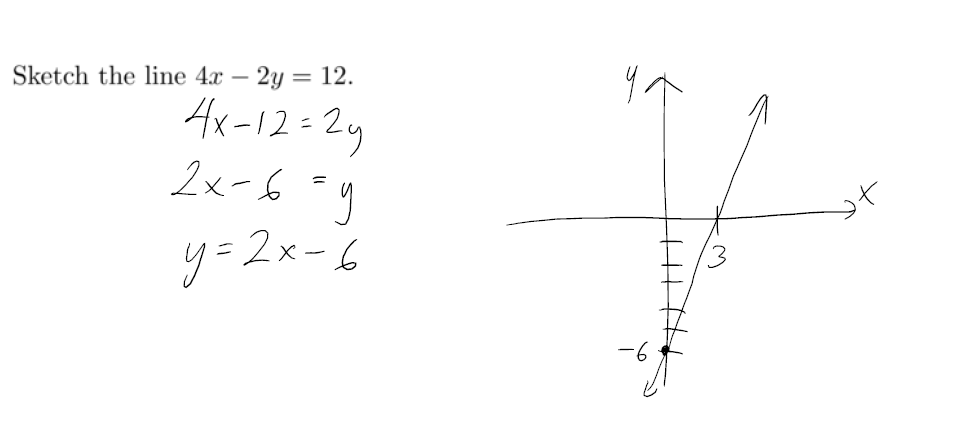 Sketch the line 4x − 2y = 12.
4x-12=2y
2x-6 =y
y=2x-6
y
x
3
-6